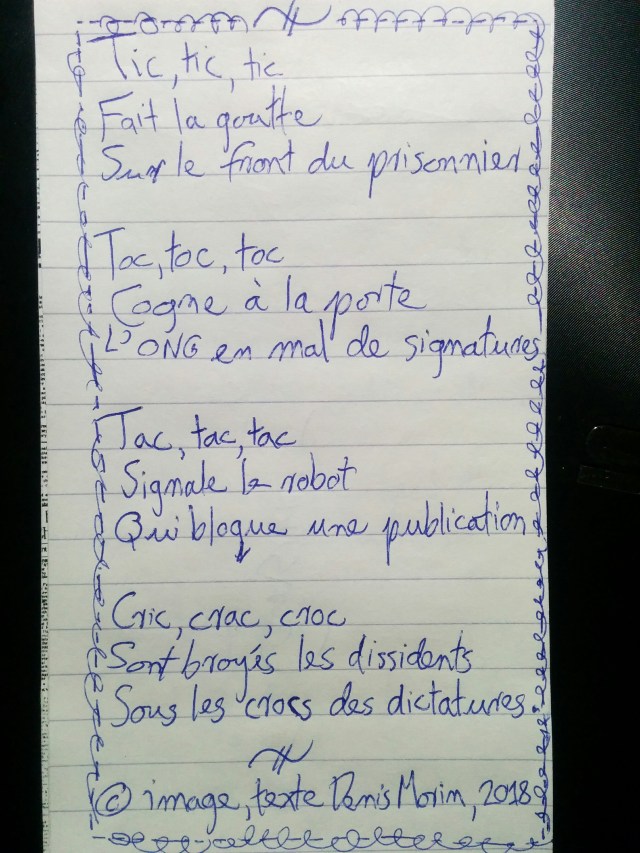 Tic, tic, tic
Fait la goutte
Sur le front du prisonnier
Toc, toc, toc
Cogne à la porte
L'ONG en mal de signatures
Tac, tac, tac
Signale le robot
Qui bloque une publication
Cric, crac, croc
Sont broyés les dissidents
Sous les crocs des dictatures.
© image, texte Denis Morin, 2018